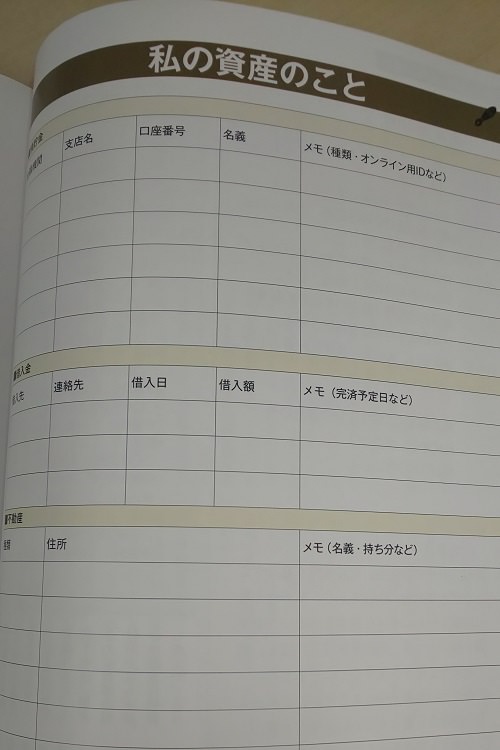 私の資産のこと
支店名 口座番号 名義 メモ（種類・オンライン用IDなど）
借入金
借入先 連絡先 借入日 借入額 メモ（完済予定日など）
■不動産
種類 住所 メモ（名義・持ち分など）